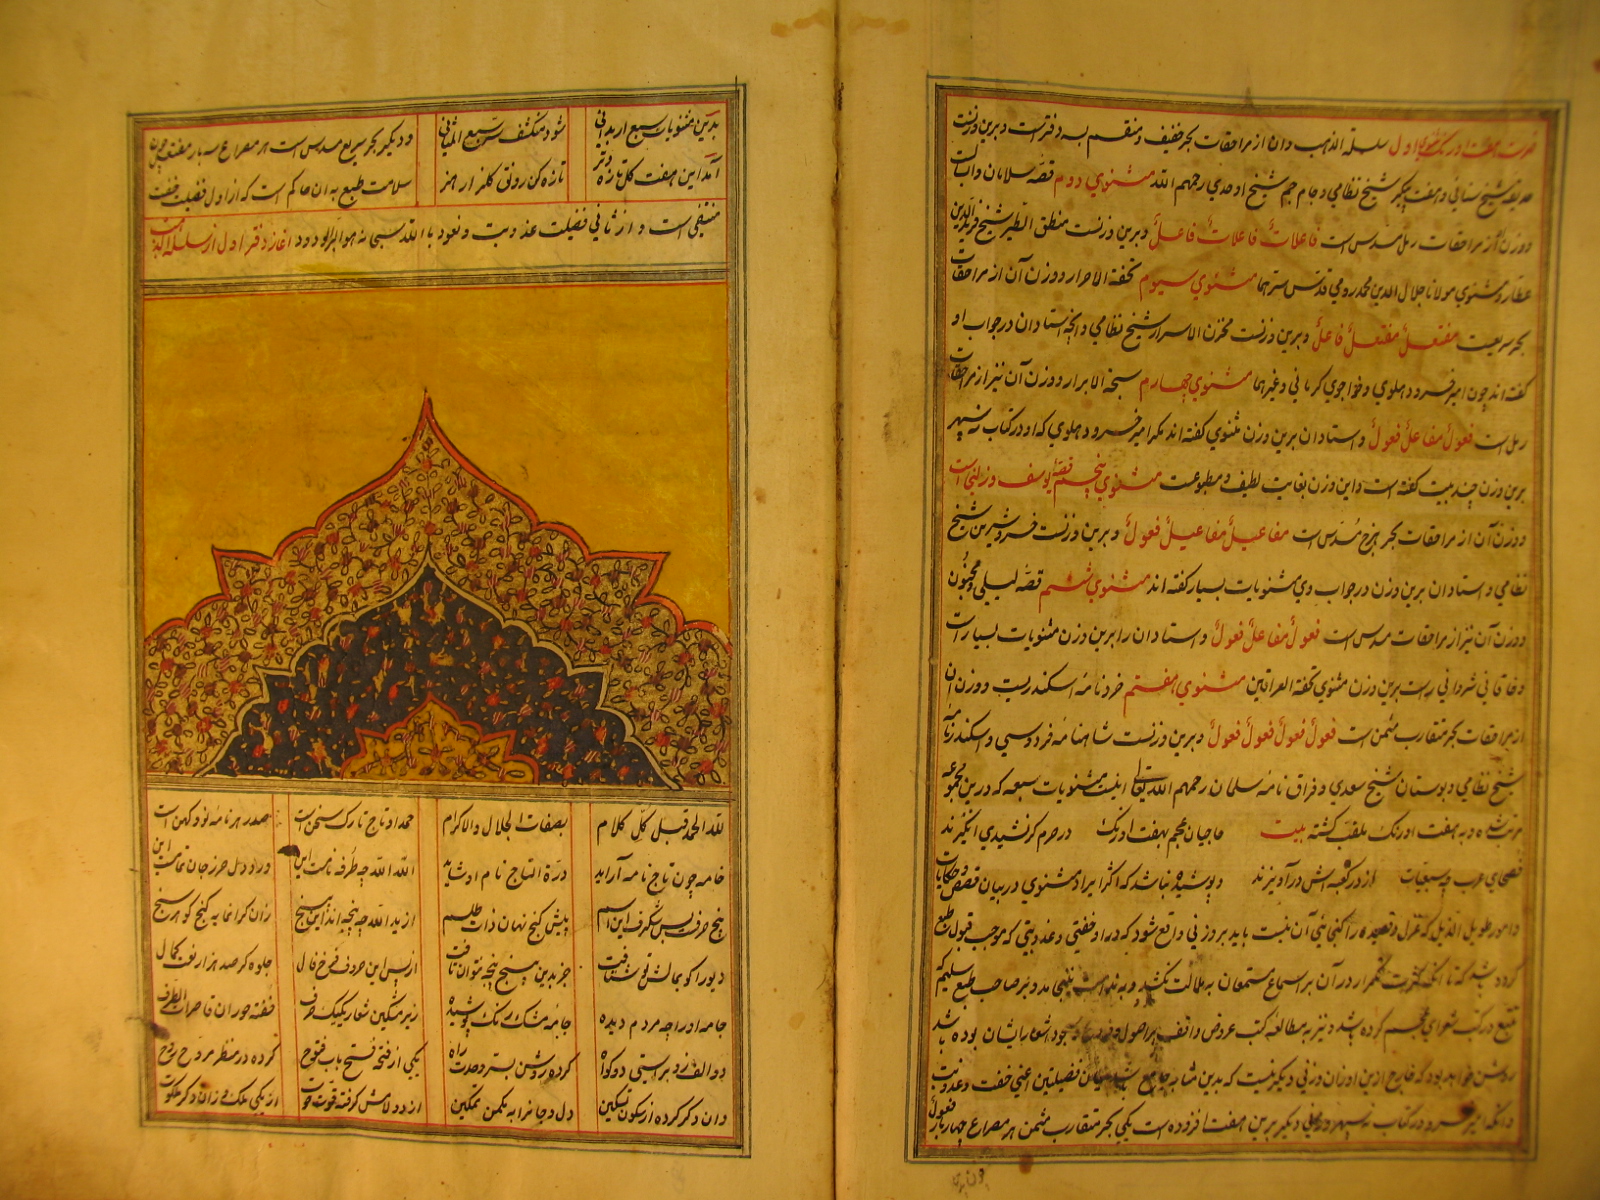 صورت هفت اورنگ مثنوی اول سلسلة الذهب و آن از مزاحفات بحر خفیف و منقسم به سه دفتر است و برین وزنست
حدیقهٔ شیخ سنائی و هفت پیکر شیخ نظامی و جام جم شیخ اوحدی رحمهم الله مثنوی دوم قصه سلامان و ابسالست
و وزن آن از مزاحفات رمل مسدس است فاعلاتن فاعلاتن فاعلن و برین وزنست منطق الطیر شیخ فرید الدین
عطار و مثنوی مولانا جلال الدین محمد رومی قدس سرهما مثنوی سیوم تحفة الاحرار و وزن آن از مزاحفات
بحر سریعست مفتعلن مفتعلن فاعلن و برین وزنست مخزن الاسرار شیخ نظامی و آنچه استادان در جواب او
گفته اند چون امیر خسرو دهلوی و خواجوی کرمانی و غیرهما مثنوی چهارم سبحة الابرار و وزن آن نیز از مزاحفات
رمل است و استادان برین وزن مثنوی نگفته اند مگر امیر خسرو دهلوی که او در کتاب نه سپهر
برین وزن چند بیت گفته است و این وزن بغایت لطیف و مطبوعست مثنوی پنجم قصهٔ یوسف و زلیخا است
و وزن آن از مزاحفات بحر هزج مسدس است مفاعیلن مفاعیلن فعولن و برین وزنست خسرو شیرین شیخ
نظامی و استادان برین وزن در جواب وی مثنویات بسیار گفته اند مثنوی ششم قصه لیلی و مجنون
و وزن آن نیز از مزاحفات مسدس است و استادان را برین وزن مثنویات بسیار است
و خاقانی شروانی راست برین وزن مثنوی تحفة العراقین مثنوی هفتم خردنامهٔ اسکندریست و وزن آن
از مزاحفات بحر متقارب مثمن است فعولن فعولن فعولن فعول و برین وزنست شاهنامهٔ فردوسی و اسکندرنامهٔ
شیخ نظامی و بوستان شیخ سعدی و فراق نامهٔ سلمان رحمهم الله تعالی اینست مثنویات سبعه که درین مجموعه
مرتب شده و به هفت اورنگ ملقب گشته بیت حاجیان عجم بهفت اورنگ در حرم گر نشیدی انگیزند
فصحای عرب چو سبعیات از در کعبه اش در آویزند و پوشیده نباشد که اکثر ایراد مثنوی در بیان قصص و حکایات
و امور طویل الذیل که غزل و قصیده را گنجائی آن نیست باید بر وزنی واقع شود که در او خفتی و عذوبتی که موجب قبول طبع
گردد باشد تا آنکه کثرت تکرار در آن بر اسماع مستمعان به ملالت نکشد و بر صاحب طبع سلیم که
تتبع در کتب شعرای عجم کرده باشد و نیز به مطالعهٔ کتب عروض واقف بر اصول و اشعار ایشان بوده باشد
روشن خواهد بود که خارج ازین اوزان وزنی دیگر نیست که بدین مثابه جامع فضیلتین اعنی خفت و عذوبت
و آنکه امیر خسرو در کتاب نه سپهر وزنی دیگر برین هفت افزوده است یکی بحر متقارب مثمن هر مصراع چهار بار فعولن
بدین مثنویات سبع ار بدانی شود منکشف سر سبع المثانی و دیگر بحر سریع مسدس است هر مصراع سه بار مفتعلن
آمد این هفت گل تازه و تر تازه کن رونق گلزار هنر سلامت طبع به آن حاکم است که از اول فضیلت خفت
منتفی است و از ثانی فضیلت عذوبت و نعوذ بالله حسبی نه هو البر الودود آغاز دفتر اول از سلسلة الذهب
لله الحمد قبل کل کلام بصفات الجلال والاکرام حمد او تاج تارک سخن است صدر هر نامهٔ نو و کهن است
خامه چون تاج نامه آراید درة التاج نام او شاید الله الله چه طرفه نامست این ورد دل حرز جان تمامست این
پنج حرفیست بس شگرف این اسم پیش گنج نهان ذات طلسم از ید الله چه پنجه اند این پنج زان گرانمایه گنج گوهر سنج
دیو را کو بمالش تو شتافت جز بدین پنج پنجه نتوان تافت از پس این حروف فرخ فال جلوه گر صد هزار نقش کمال
جامه او را چه مردم دیده جامهٔ مشک رنگ پوشیده زیر مشکین شعار یکیک حرف خفته حوران قاصرات الطرف
دو الف زو براستی دو گواه کرده روشن بسر وحدت راه یکی از فتحه فتح باب فتوح کرده در منظر مروح روح
وان دگر کرده از سکون تسکین دل و جانرا به مکمن تمکین از دو لامش گرفته قوت و قوت از یکی ملک و زان دگر ملکوت